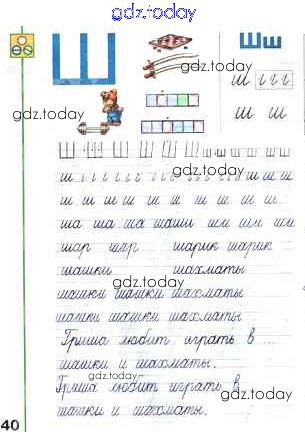 gdz.today
Ш
Шш
gdz.today
ш ι ι ι
gdz.today
gdz.today
ш ш
Ш Ш Ш Ш Ш ш ш ш ш
gdz.today
ш ш ш ш
ш ш ш ш ш ш ш ш ш
ша ша ша шаши ши ши ши
шар шар шарик шарик
gdz.today
шашки шахматы
gdz.today
шашки шашки шахматы
шашки шашки шахматы
Гриша любит играть в ...
шашки и шахматы.
gdz.today
Гриша любит играть в
шашки и шахматы.
40
gdz.today